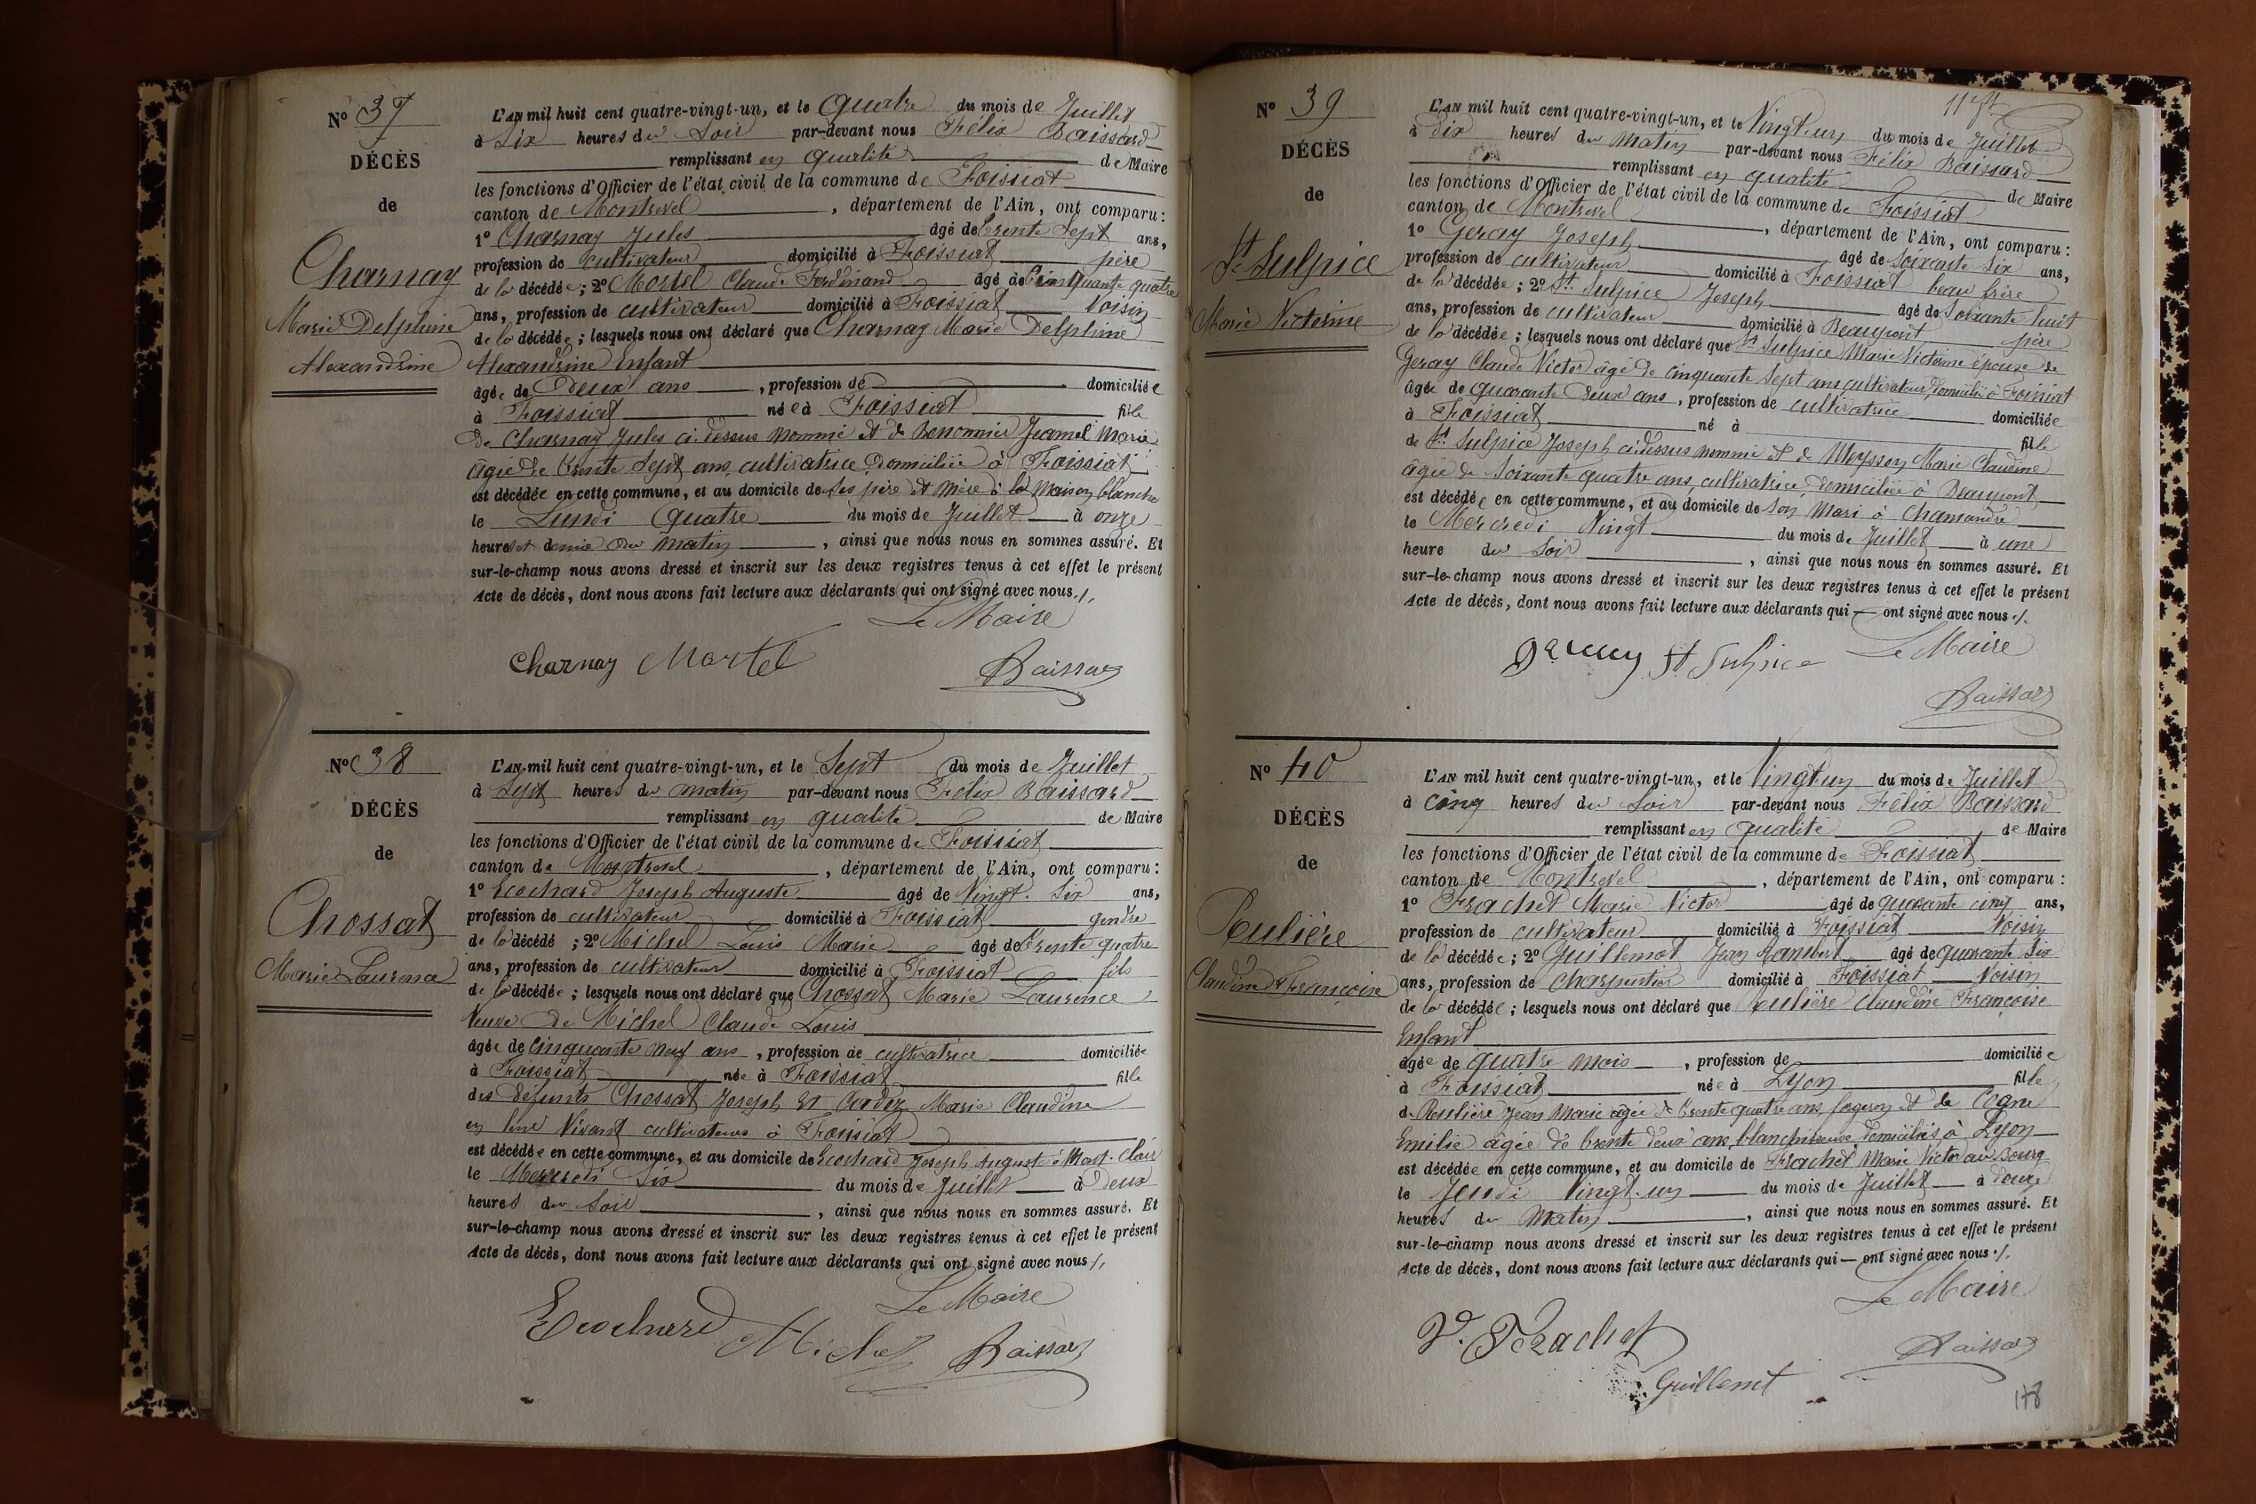 N° 37
DÉCÈS
de
Charnay
Marie Delphine
Alexandrine
L'AN mil huit cent quatre-vingt-un, et le Quatre du mois de Juillet
à Six heures du Soir par-devant nous Félix Baissard
remplissant en qualité de Maire
les fonctions d'Officier de l'état civil de la commune de Foissiat
canton de Montrevel, département de l'Ain, ont comparu :
1° Charnay Jules âgé de trente Sept ans,
profession de cultivateur domicilié à Foissiat père
de la décédée ; 2° Mortel Claude Ferdinand âgé de Cinquante quatre
ans, profession de cultivateur domicilié à Foissiat Voisin
de la décédée ; lesquels nous ont déclaré que Charnay Marie Delphine
Alexandrine Enfant
âgée de Deux ans, profession de domiciliée
à Foissiat née à Foissiat fille
de Charnay Jules ci-dessus nommé et de Marie
âgée de trente Sept ans cultivatrice domiciliée à Foissiat
est décédée en cette commune, et au domicile de Ses père et mère à la Maison blanche
le Lundi Quatre du mois de Juillet à onze
heures et demie du Matin, ainsi que nous nous en sommes assuré. Et
sur-le-champ nous avons dressé et inscrit sur les deux registres tenus à cet effet le présent
Acte de décès, dont nous avons fait lecture aux déclarants qui ont signé avec nous ./.
Le Maire
Charnay Martel Baissard
N° 38
DÉCÈS
de
Chossat
Marie Laurence
L'AN mil huit cent quatre-vingt-un, et le Sept du mois de Juillet
à Sept heures du matin par-devant nous Félix Baissard
remplissant en qualité de Maire
les fonctions d'Officier de l'état civil de la commune de Foissiat
canton de Montrevel, département de l'Ain, ont comparu :
1° Ecochard Joseph Auguste âgé de Vingt-Six ans,
profession de cultivateur domicilié à Foissiat gendre
de la décédé ; 2° Michel Louis Marie âgé de trente quatre
ans, profession de cultivateur domicilié à Foissiat fils
de la décédée ; lesquels nous ont déclaré que Chossat Marie Laurence
Veuve de Michel Claude Louis
âgée de Cinquante neuf ans, profession de cultivatrice domiciliée
à Foissiat née à Foissiat fille
des défunts Chossat Joseph et Marie Claudine
en leur Vivant cultivateurs à Foissiat
est décédée en cette commune, et au domicile de Ecochard Joseph Auguste à Mont-Clair
le Mercredi Six du mois de Juillet à Deux
heures du Soir, ainsi que nous nous en sommes assuré. Et
sur-le-champ nous avons dressé et inscrit sur les deux registres tenus à cet effet le présent
Acte de décès, dont nous avons fait lecture aux déclarants qui ont signé avec nous ./.
Le Maire
Ecochard Michel Baissard
N° 39
DÉCÈS
de
St Sulpice
Marie Victorine
L'AN mil huit cent quatre-vingt-un, et le Vingt un du mois de Juillet
à Dix heures du Matin par-devant nous Félix Baissard
remplissant en qualité de Maire
les fonctions d'Officier de l'état civil de la commune de Foissiat
canton de Montrevel, département de l'Ain, ont comparu :
1° Geray Joseph âgé de Soixante Six ans,
profession de cultivateur domicilié à Foissiat beau frère
de la décédée ; 2° St Sulpice Joseph âgé de Soixante huit
ans, profession de cultivateur domicilié à Beaupont père
de la décédée ; lesquels nous ont déclaré que St Sulpice Marie Victorine épouse de
Geray Claude Victor âgé de cinquante Sept ans cultivateur domicilié à Foissiat
âgée de quarante Deux ans, profession de cultivatrice domiciliée
à Foissiat né à fille
de St Sulpice Joseph ci-dessus nommé et de Meysson Marie Claudine
âgée de Soixante quatre ans cultivatrice domiciliée à Beaupont
est décédée en cette commune, et au domicile de Son Mari à Chamandre
le Mercredi Vingt du mois de Juillet à une
heure du Soir, ainsi que nous nous en sommes assuré. Et
sur-le-champ nous avons dressé et inscrit sur les deux registres tenus à cet effet le présent
Acte de décès, dont nous avons fait lecture aux déclarants qui — ont signé avec nous ./.
Le Maire
St Sulpice
Baissard
N° 40
DÉCÈS
de
Rulière
Claudine Françoise
L'AN mil huit cent quatre-vingt-un, et le Vingt un du mois de Juillet
à Cinq heures du Soir par-devant nous Félix Baissard
remplissant en qualité de Maire
les fonctions d'Officier de l'état civil de la commune de Foissiat
canton de Montrevel, département de l'Ain, ont comparu :
1° Frachet Marie Victor âgé de quarante cinq ans,
profession de cultivateur domicilié à Foissiat Voisin
de la décédée ; 2° Guillemot Jean Rambert âgé de quarante Six
ans, profession de Charpentier domicilié à Foissiat Voisin
de la décédée ; lesquels nous ont déclaré que Rulière Claudine Françoise
Enfant
âgée de quatre mois, profession de domiciliée
à Foissiat née à Lyon fille
de Rulière Jean Marie âgé de trente quatre ans forgeron et de Cogne
Emilie âgée de trente deux ans blanchisseuse domiciliés à Lyon
est décédée en cette commune, et au domicile de Frachet Marie Victor au Bourg
le Jeudi Vingt-un du mois de Juillet à douze
heures du Matin, ainsi que nous nous en sommes assuré. Et
sur-le-champ nous avons dressé et inscrit sur les deux registres tenus à cet effet le présent
Acte de décès, dont nous avons fait lecture aux déclarants qui — ont signé avec nous ./.
Le Maire
V. Frachet Baissard
Guillemot